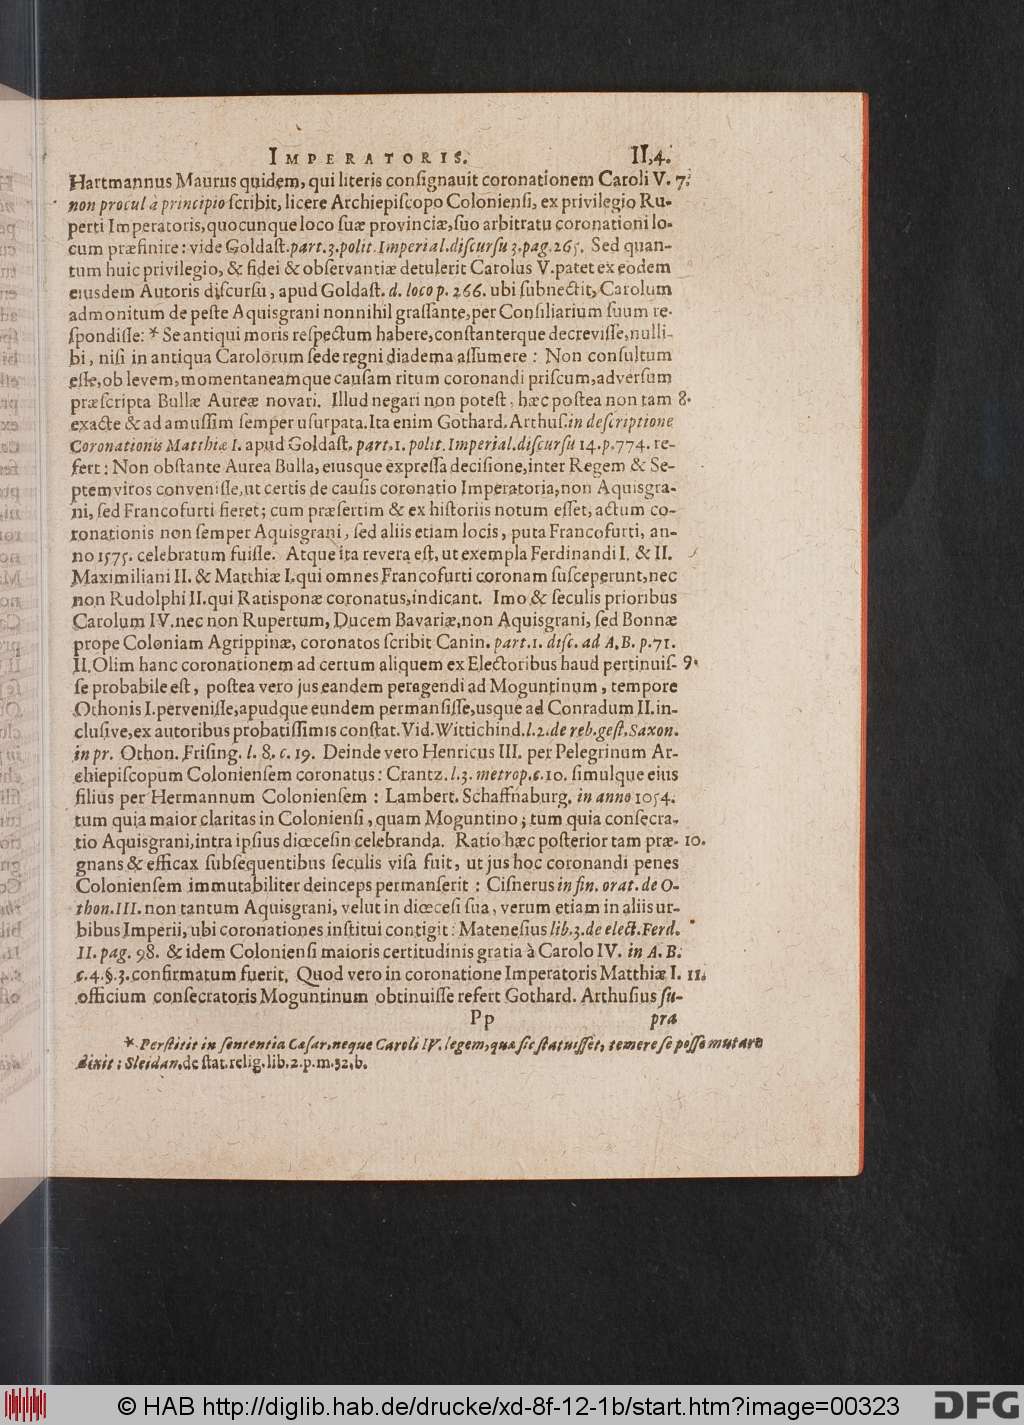 IMPERATORIS. II,4.
Hartmannus Maurus quidem, qui literis conſignauit coronationem Caroli V. 7.
non procul à principio ſcribit, licere Archiepiſcopo Colonienſi, ex privilegio Ru-
perti Imperatoris, quocunque loco ſuæ provinciæ, ſuo arbitratu coronationi lo-
cum præfinire: vide Goldaſt. part. 3. polit. Imperial. diſcurſu 3. pag. 265. Sed quan-
tum huic privilegio, & fidei & obſervantiæ detulerit Carolus V. patet ex eodem
eiusdem Autoris diſcurſu, apud Goldaſt. d. loco p. 266. ubi ſubnectit, Carolum
admonitum de peſte Aquisgrani nonnihil graſſante, per Conſiliarium ſuum re-
ſpondiſſe: * Se antiqui moris reſpectum habere, conſtanterque decreviſſe, nulli-
bi, niſi in antiqua Carolorum ſede regni diadema aſſumere: Non conſultum
eſſe, ob levem, momentaneamque cauſam ritum coronandi priſcum, adverſum
præſcripta Bullæ Aureæ novari. Illud negari non poteſt, hæc poſtea non tam 8.
exacte & ad amuſſim ſemper uſurpata. Ita enim Gothard. Arthuſ. in deſcriptione
Coronationis Matthiæ I. apud Goldaſt. part. 1. polit. Imperial. diſcurſu 14. p. 774. re-
fert: Non obſtante Aurea Bulla, eiusque expreſſa deciſione, inter Regem & Se-
ptemviros conveniſſe, ut certis de cauſis coronatio Imperatoria, non Aquisgra-
ni, ſed Francofurti fieret; cum præſertim & ex hiſtoriis notum eſſet, actum co-
ronationis non ſemper Aquisgrani, ſed aliis etiam locis, puta Francofurti, an-
no 1575. celebratum fuiſſe. Atque ita revera eſt, ut exempla Ferdinandi I. & II.
Maximiliani II. & Matthiæ I. qui omnes Francofurti coronam ſuſceperunt, nec
non Rudolphi II. qui Ratisponæ coronatus, indicant. Imo & ſeculis prioribus
Carolum IV. nec non Rupertum, Ducem Bavariæ, non Aquisgrani, ſed Bonnæ
prope Coloniam Agrippinæ, coronatos ſcribit Canin. part. 1. diſc. ad A. B. p. 71.
II. Olim hanc coronationem ad certum aliquem ex Electoribus haud pertinuiſ- 9.
ſe probabile eſt, poſtea vero jus eandem peragendi ad Moguntinum, tempore
Othonis I. perveniſſe, apudque eundem permanſiſſe, usque ad Conradum II. in-
cluſive, ex autoribus probatiſſimis conſtat. Vid. Wittichind. l. 2. de reb. geſt. Saxon.
in pr. Othon. Friſing. l. 8. c. 19. Deinde vero Henricus III. per Pelegrinum Ar-
chiepiſcopum Colonienſem coronatus: Crantz. l. 3. metrop. c. 10. ſimulque eius
filius per Hermannum Colonienſem: Lambert. Schaffnaburg. in anno 1054.
tum quia maior claritas in Colonienſi, quam Moguntino; tum quia conſecra-
tio Aquisgrani, intra ipſius diœceſin celebranda. Ratio hæc poſterior tam præ- 10.
gnans & efficax ſubſequentibus ſeculis viſa fuit, ut jus hoc coronandi penes
Colonienſem immutabiliter deinceps permanſerit: Ciſnerus in fin. orat. de O-
thon. III. non tantum Aquisgrani, velut in diœceſi ſua, verum etiam in aliis ur-
bibus Imperii, ubi coronationes inſtitui contigit: Mateneſius lib. 3. de elect. Ferd.
II. pag. 98. & idem Colonienſi maioris certitudinis gratia à Carolo IV. in A. B.
c. 4. §. 3. confirmatum fuerit. Quod vero in coronatione Imperatoris Matthiæ I. 11.
officium conſecratoris Moguntinum obtinuiſſe refert Gothard. Arthuſius ſu-
Pp pra
* Perſtitit in ſententia Cæſar, neque Caroli IV. legem, qua ſic ſtatuiſſet, temere ſe poſſe mutare
dixit: Sleidan. de ſtat. relig. lib. 2. p. m. 32. b.
© HAB http://diglib.hab.de/drucke/xd-8f-12-1b/start.htm?image=00323 DFG